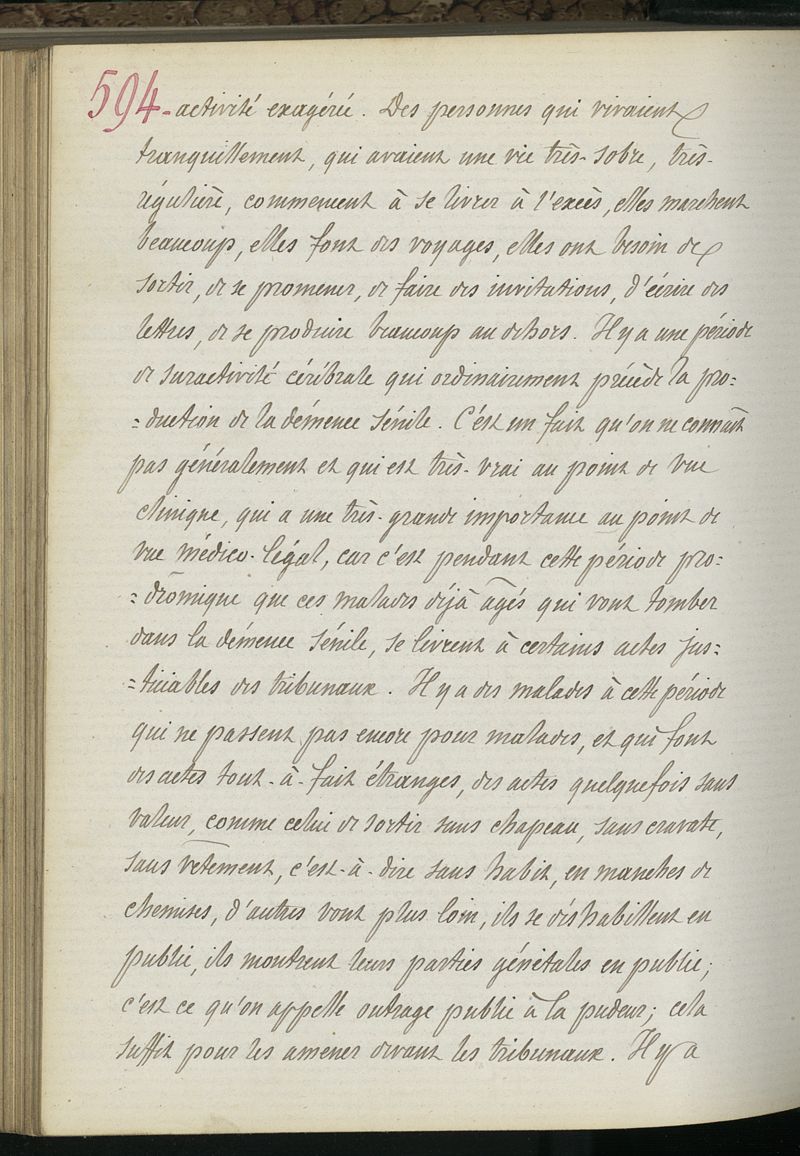 594 - activité exagérée. Des personnes qui vivaient
tranquillement, qui avaient une vie très-sobre, très-
régulière, commencent à se livrer à l'excès, elles marchent
beaucoup, elles font des voyages, elles ont besoin de
sortir, de se promener, de faire des invitations, d'écrire des
lettres, de se produire beaucoup au dehors. Il y a une période
de suractivité cérébrale qui ordinairement précède la pro=
=duction de la démence sénile. C'est un fait qu'on ne connaît
pas généralement et qui est très-vrai au point de vue
clinique, qui a une très-grande importance au point de
vue médico-légal, car c'est pendant cette période pro=
=drômique que ces malades déjà agés qui vont tomber
dans la démence sénile, se livrent à certains actes jus=
=ticiables des tribunaux. Il y a des malades à cette période
qui ne passent pas encore pour malades, et qui font
des actes tout-à-fait étranges, des actes quelquefois sans
valeur, comme celui de sortir sans chapeau, sans cravate,
sans vêtement, c'est-à-dire sans habit, en manches de
chemises, d'autres vont plus loin, ils se déshabillent en
public, ils montrent leurs parties génitales en public;
c'est ce qu'on appelle outrage public à la pudeur; cela
suffit pour les amener devant les tribunaux. Il y a